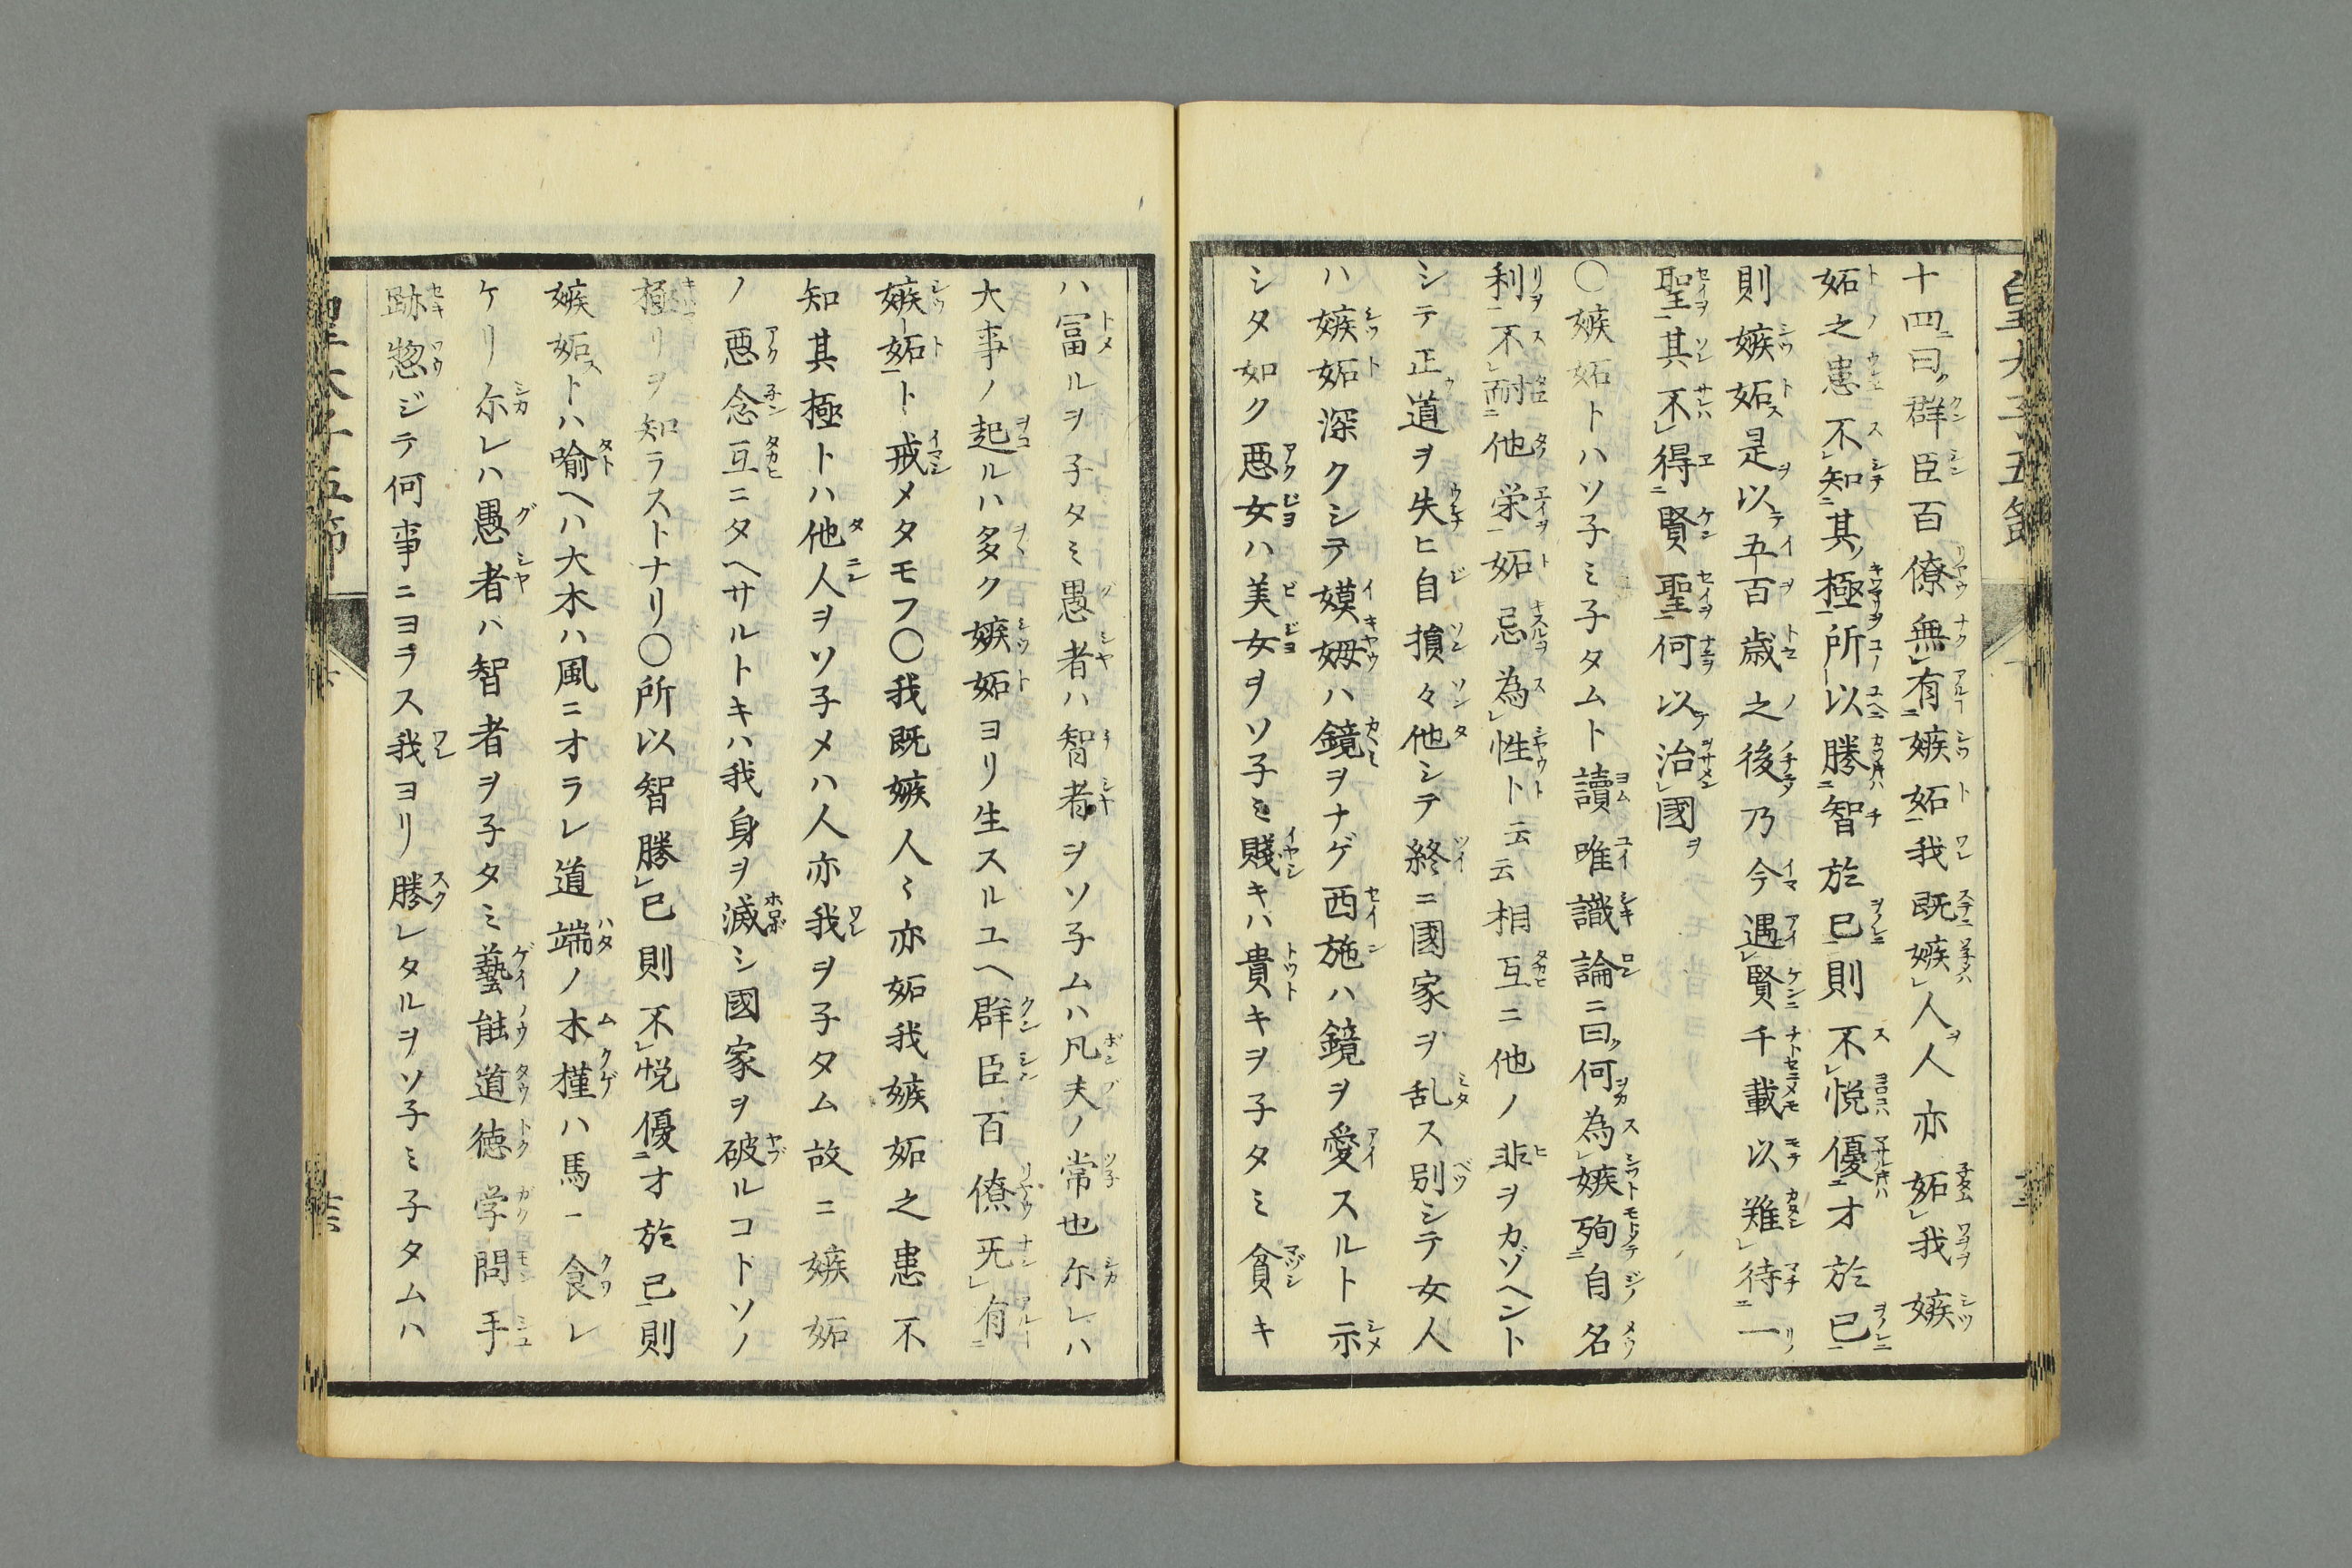 十四曰群臣百僚無有嫉妬我既嫉人人亦妬我嫉
妬之患不知其極所以勝智於已則不悦優才於已
則嫉妬是以五百歳之後乃今遇賢千載以難待一
聖其不得賢聖何以治國
〇嫉妬トハソ子ミ子タムト讀唯識論ニ曰何為嫉殉自名
利不耐他栄妬忌為性ト云云相互ニ他ノ非ヲカゾヘント
シテ正道ヲ失ヒ自損々他シテ終ニ國家ヲ乱ス別シテ女人
ハ嫉妬深クシテ嫫姆ハ鏡ヲナゲ西施ハ鏡ヲ愛スルト示
シタ如ク悪女ハ美女ヲソ子ミ賤キハ貴キヲ子タミ貧キ
ハ冨ルヲ子タミ愚者ハ智者ヲソ子ムハ凡夫ノ常也尓レハ
大事ノ起ルハ多ク嫉妬ヨリ生スルユヘ群臣百僚旡有
嫉妬ト戒メタモフ〇我既嫉人〻亦妬我嫉妬之患不
知其極トハ他人ヲソ子メハ人亦我ヲ子タム故ニ嫉妬
ノ悪念互ニタヘサルトキハ我身ヲ滅シ國家ヲ破ルコトソノ
極リヲ知ラストナリ〇所以智勝已則不悦優才於已則
嫉妬トハ喩ヘハ大木ハ風ニオラレ道端ノ木槿ハ馬ニ食レ
ケリ尓レハ愚者ハ智者ヲ子タミ藝能道徳学問手
跡惣ジテ何事ニヨラス我ヨリ勝レタルヲソ子ミ子タムハ